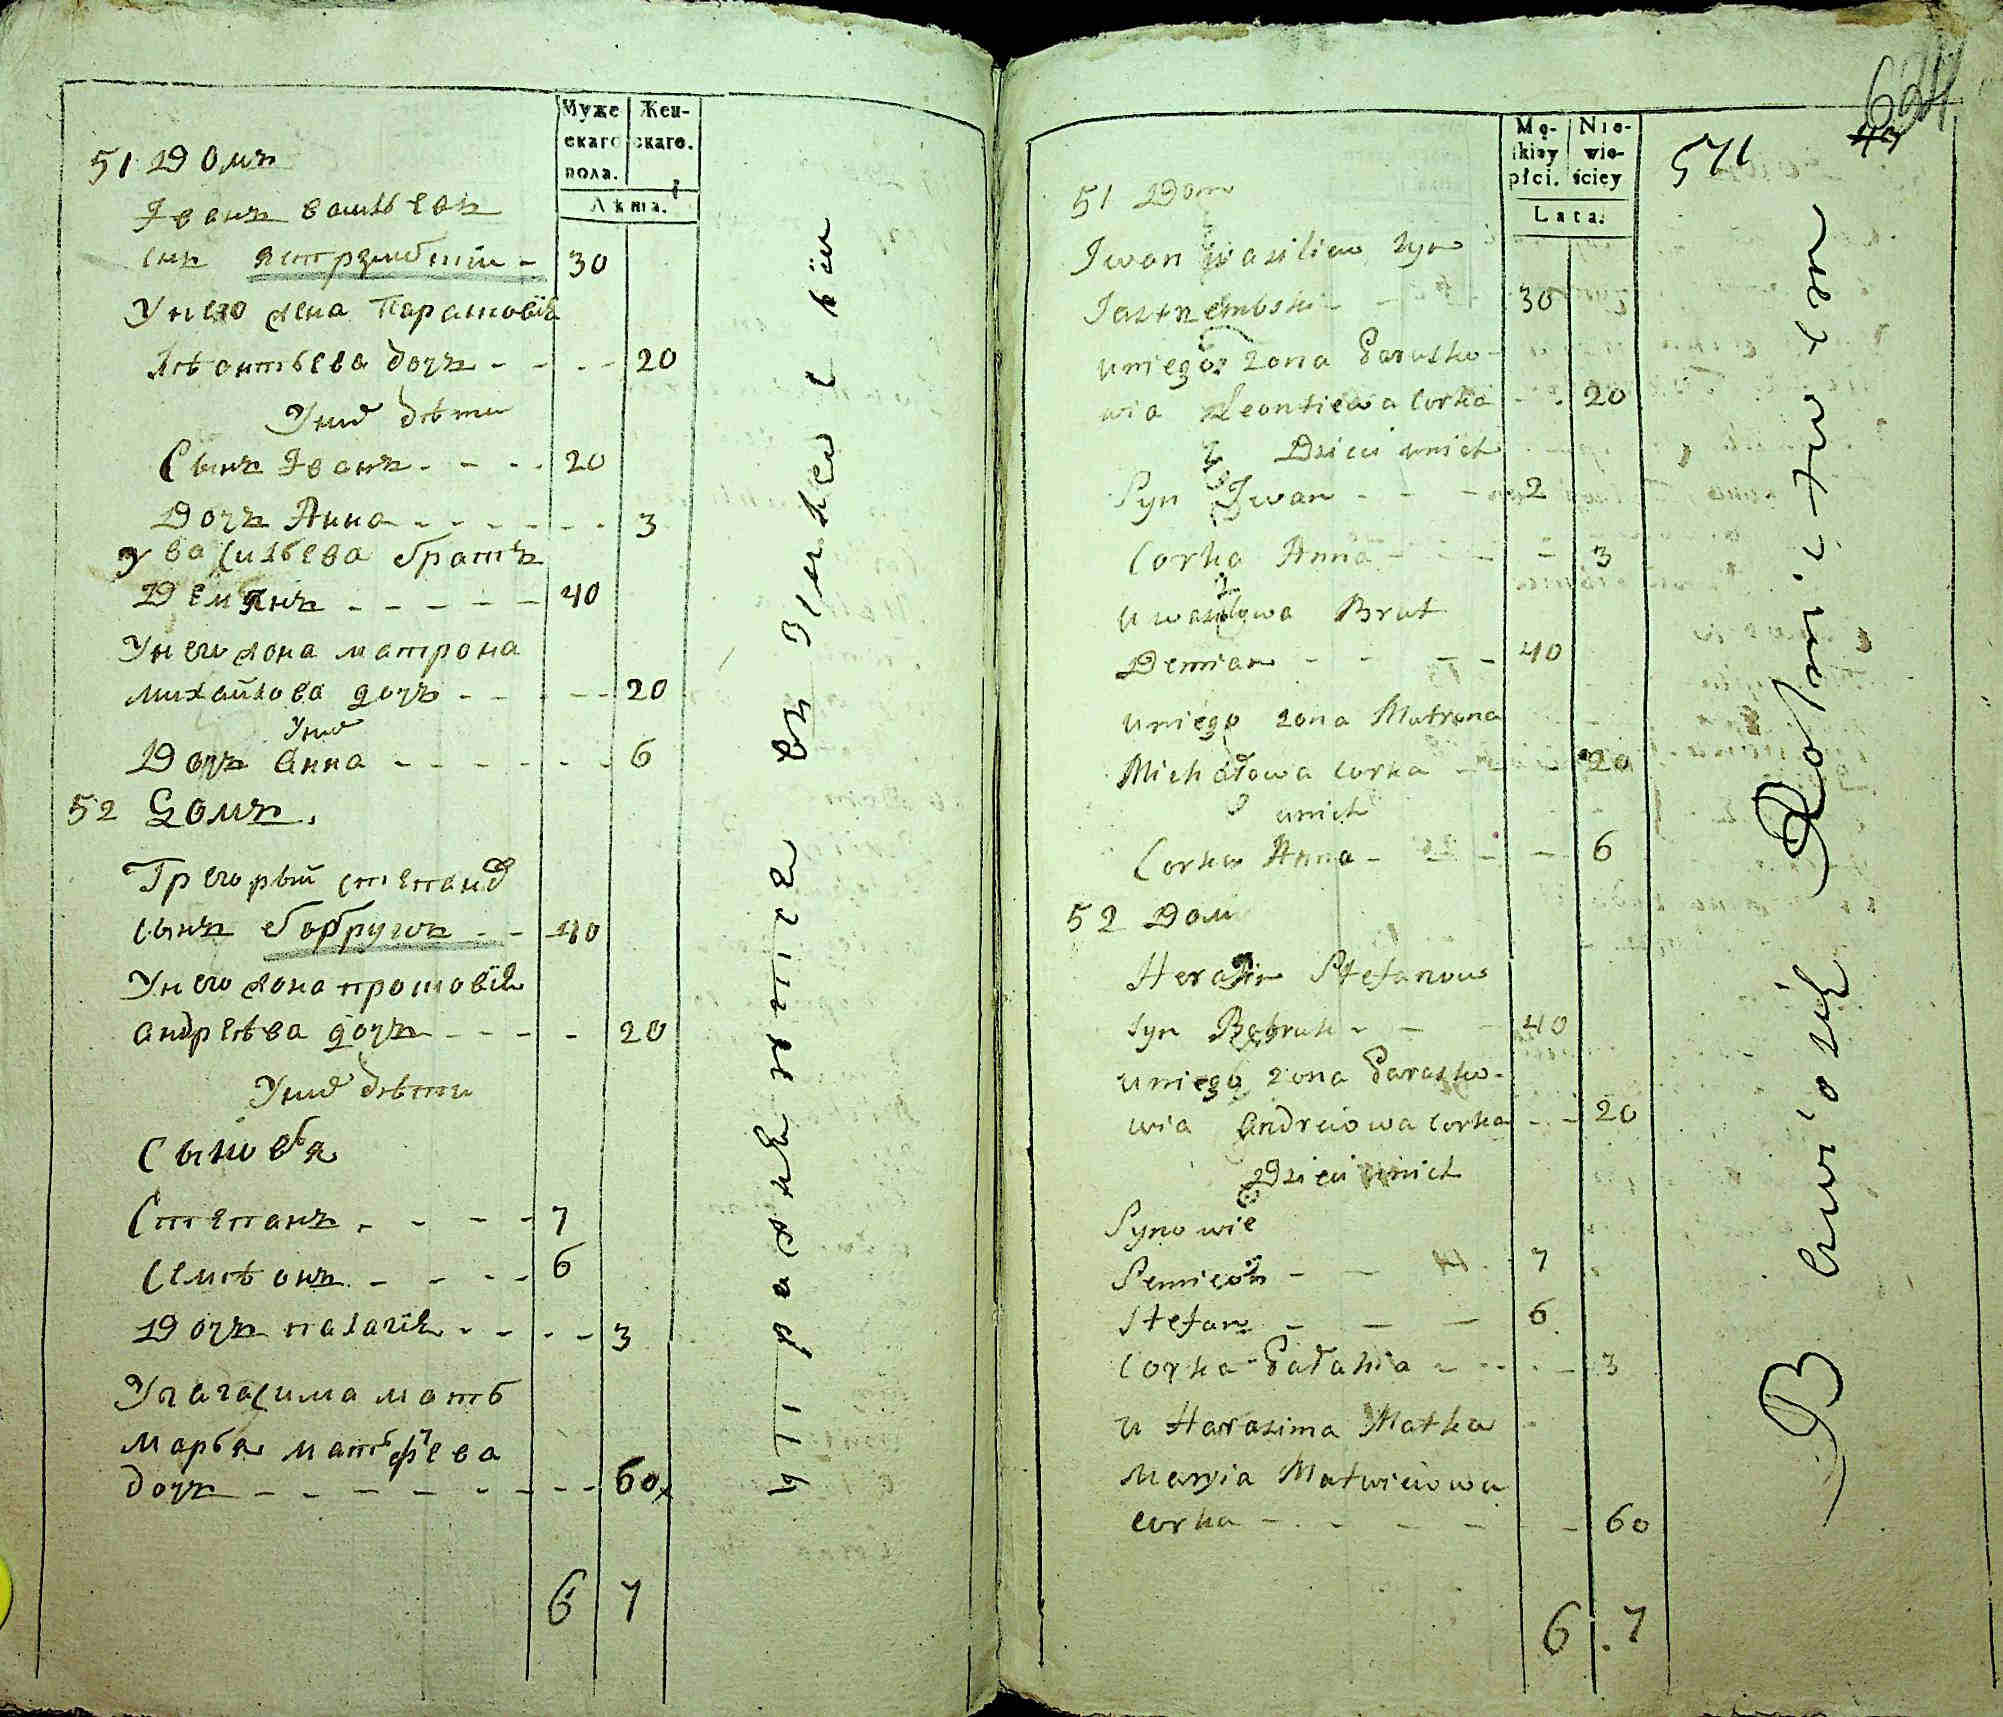 Муже Жен-
скаго скаго.
пола.
Лѣта.
51 Домъ
Іванъ васильевъ
сынъ ястрзембскій - 30
У него жена Парасковія
Леонтьева дочъ - - - - 20
У них дѣти
Сынъ Іванъ - - - - 20
Дочъ Анна - - - - - - 3
У васильева братъ
Демянъ - - - - - 40
У него жона матрона
михайлова дочъ - - - - - 20
У них
Дочъ анна - - - - - - 6
52 Домъ.
Грегорый степанов
сынъ бобрукъ - - 40
У него жона просковія
андреева дочъ - - - - 20
У них дѣти
Сыновья
Степанъ - - - - 7
Семіонъ - - - - 6
Дочъ палагія - - - - 3
У гарасима мать
марья матфѣева
дочъ - - - - - - - - 60
6 7
Mę- Nie-
skiey wie-
płci. ściey
Lata.
571
624
51 Dom
Iwan wasiliew syn
Jastrzembski - - - 30
u niego zona Parasko-
wia Leontiewa corka - - 20
Dzieci u nich
Syn Iwan - - - 2
Corka Anna - - - - 3
u wasilowa Brat
Demian - - - - 40
u niego zona Matrona
Michałowa corka - - - 20
u nich
Corka Anna - - - - 6
52 Dom
Herasim Stefanow
syn Bobruk - - - 40
u niego zona Parasko-
wia Andreiowa corka - - 20
Dzieci u nich
Synowie
Semieon - - - 7
Stefan - - - 6
Corka Pałahia - - - - 3
u Harasima Matka
Maryia Matwieiowa
corka - - - - - - 60
6 . 7